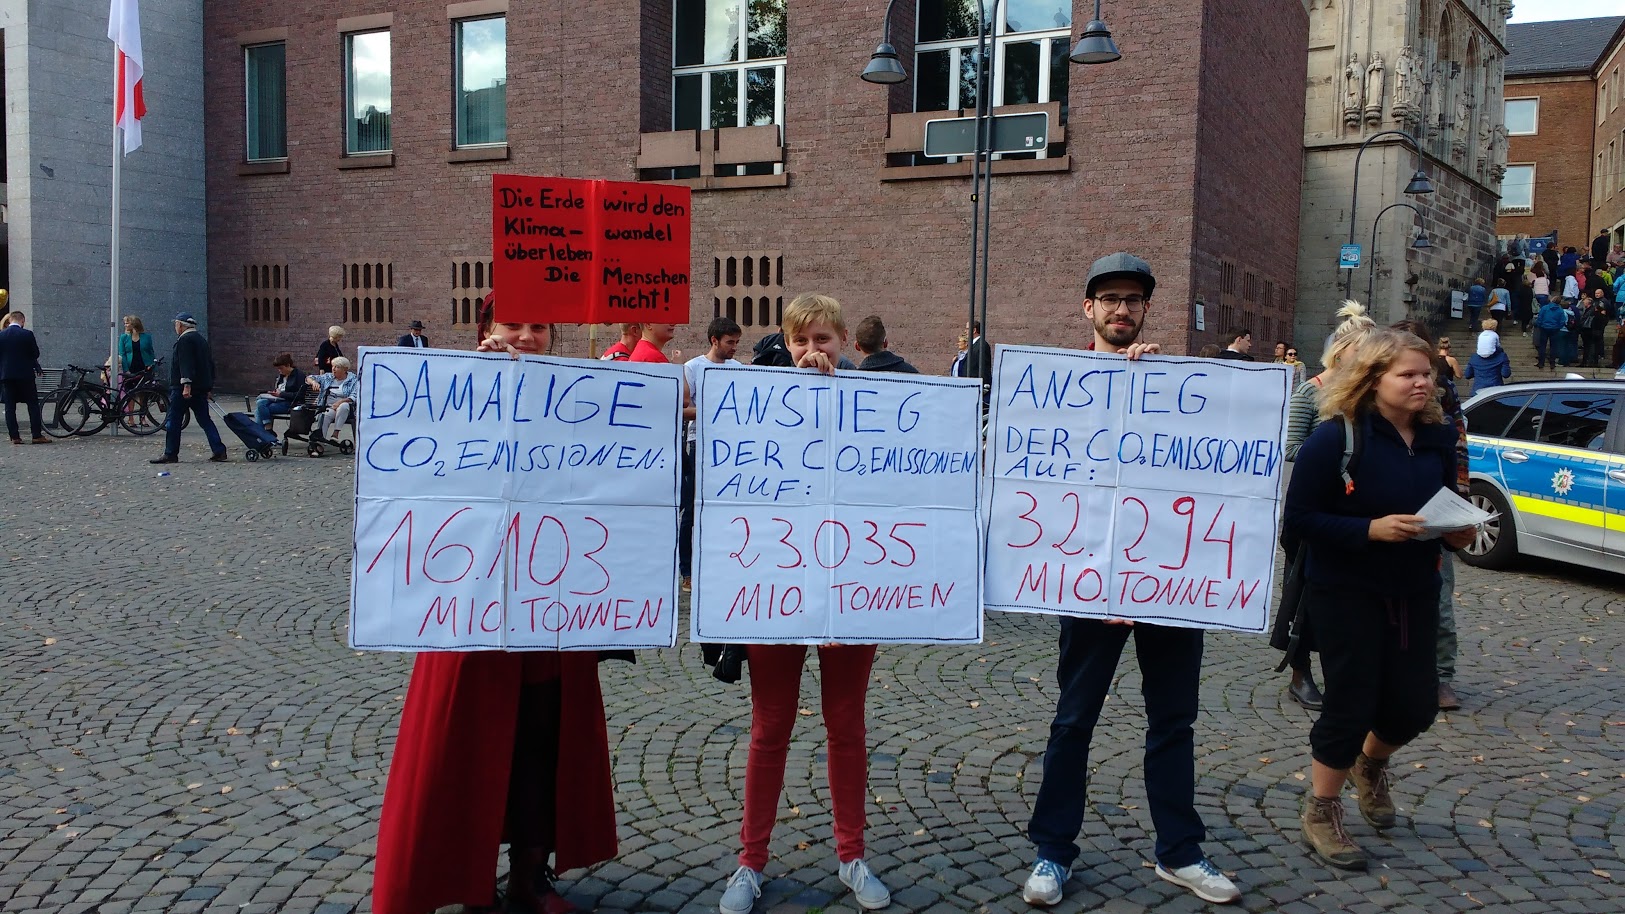 Die Erde wird den
Klima- wandel
überleben ...
Die Menschen
nicht!
DAMALIGE
CO₂ EMISSIONEN:
16.103
MIO. TONNEN
ANSTIEG
DER CO₂ EMISSIONEN
AUF:
23.035
MIO. TONNEN
ANSTIEG
DER CO₂ EMISSIONEN
AUF:
32.294
MIO. TONNEN